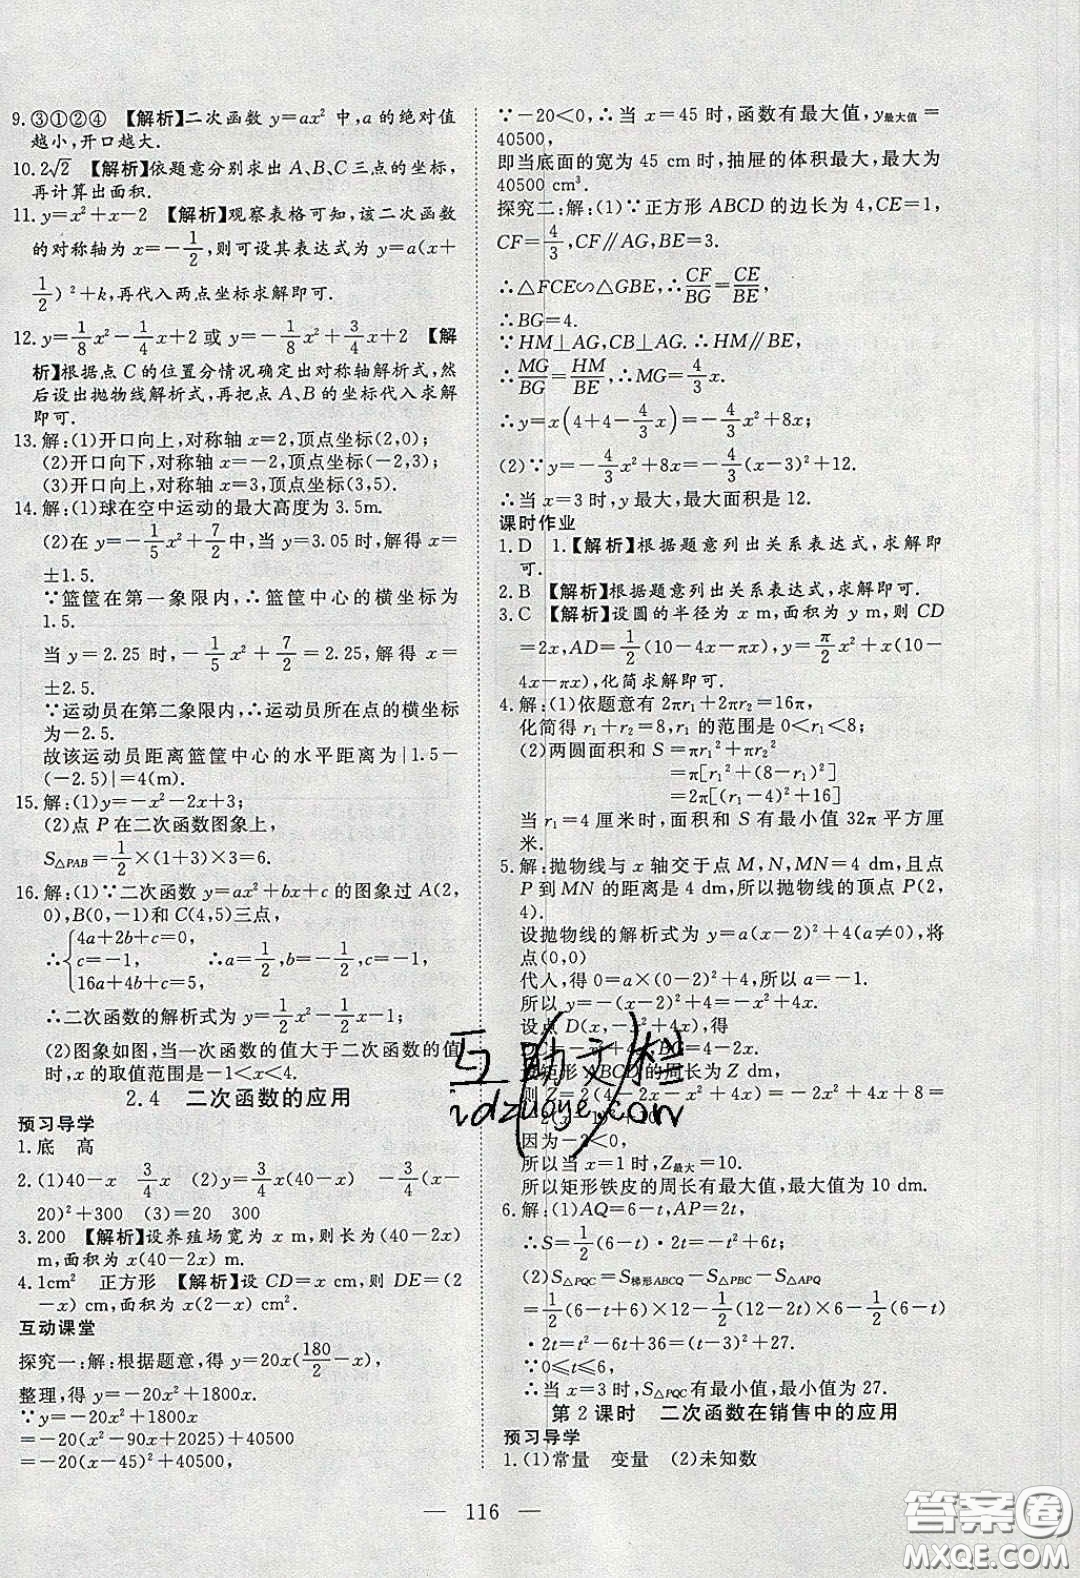 9. ③①②④ 【解析】二次函数 y=ax² 中,a 的绝对值
越小,开口越大.
10. 2√2 【解析】依题意分别求出 A、B、C 三点的坐标,
再计算出面积.
11. y=x²+x-2 【解析】观察表格可知,该二次函数
的对称轴为 x=-1/2,则可设其表达式为 y=a(x+
1/2)²+k,再代入两点坐标求解即可.
12. y=1/8x²-1/4x+2 或 y=-1/8x²+3/4x+2 【解
析】根据点 C 的位置分情况确定出对称轴解析式,然
后设出抛物线解析式,再把点 A、B 的坐标代入求解
即可.
13. 解:(1)开口向上,对称轴 x=2,顶点坐标(2,0);
(2)开口向下,对称轴 x=-2,顶点坐标(-2,3);
(3)开口向上,对称轴 x=3,顶点坐标(3,5).
14. 解:(1)球在空中运动的最大高度为 3.5m.
(2)在 y=-1/5x²+7/2中,当 y=3.05 时,解得 x=
±1.5.
∵篮筐在第一象限内,∴篮筐中心的横坐标为
1.5.
当 y=2.25 时,-1/5x²+7/2=2.25,解得 x=
±2.5.
∵运动员在第二象限内,∴运动员所在点的横坐标
为-2.5.
故该运动员距离篮筐中心的水平距离为|1.5-
(-2.5)|=4(m).
15. 解:(1)y=-x²-2x+3;
(2)点 P 在二次函数图象上,
S△PAB=1/2×(1+3)×3=6.
16. 解:(1)∵二次函数 y=ax²+bx+c 的图象过 A(2,
0),B(0,-1)和 C(4,5)三点,
∴{4a+2b+c=0,
c=-1, ∴a=1/2,b=-1/2,c=-1,
16a+4b+c=5,
∴二次函数的解析式为 y=1/2x²-1/2x-1;
(2)图象如图,当一次函数的值大于二次函数的值
时,x 的取值范围是-1<x<4.
2.4 二次函数的应用
预习导学
1. 底 高
2. (1)40-x 3/4x (2)y=3/4x(40-x) -3/4(x-
20)²+300 (3)=20 300
3. 200 【解析】设养殖场宽为 x m,则长为(40-2x)
m,面积为 x(40-2x) m.
4. 1cm² 正方形 【解析】设 CD=x cm,则 DE=(2
-x) cm,面积为 x(2-x) cm.
互动课堂
探究一:解:根据题意,得 y=20x(180/2-x),
整理,得 y=-20x²+1800x.
∵y=-20x²+1800x
=-20(x²-90x+2025)+40500
=-20(x-45)²+40500,
∵-20<0,∴当 x=45 时,函数有最大值,y最大值=
40500,
即当底面的宽为 45 cm 时,抽屉的体积最大,最大为
40500 cm³.
探究二:解:(1)∵正方形 ABCD 的边长为 4,CE=1,
CF=4/3,CF∥AG,BE=3.
∴△FCE∽△GBE,∴CF/BG=CE/BE,
∴BG=4.
∵HM⊥AG,CB⊥AG.∴HM∥BE,
∴MG/BG=HM/BE,∴MG=4/3x.
∴y=x(4+4-4/3x)=-4/3x²+8x;
(2)∵y=-4/3x²+8x=-4/3(x-3)²+12.
∴当 x=3 时,y 最大,最大面积是 12.
课时作业
1. D 1.【解析】根据题意列出关系表达式,求解即
可.
2. B 【解析】根据题意列出关系表达式,求解即可.
3. C 【解析】设圆的半径为 x m,面积为 y m,则 CD
=2x,AD=1/2(10-4x-πx),y=π/2x²+x(10-
4x-πx),化简求解即可.
4. 解:(1)依题意有 2πr₁+2πr₂=16π,
化简得 r₁+r₂=8,r₁ 的范围是 0<r₁<8;
(2)两圆面积和 S=πr₁²+πr₂²
=π[r₁²+(8-r₁)²]
=2π[(r₁-4)²+16]
当 r₁=4 厘米时,面积和 S 有最小值 32π 平方厘
米.
5. 解:抛物线与 x 轴交于点 M,N,MN=4 dm,且点
P 到 MN 的距离是 4 dm,所以抛物线的顶点 P(2,
4).
设抛物线的解析式为 y=a(x-2)²+4(a≠0),将
点(0,0)
代人,得 0=a×(0-2)²+4,所以 a=-1.
所以 y=-(x-2)²+4=-x²+4x.
设点 D(x,-x²+4x),得
DC=-x²+4x,AD=4-2x.
矩形 ABCD 的周长为 Z dm,
则 Z=2(4-2x-x²+4x)=-2x²+4x+8=
-2(x-1)²+10
因为-2<0,
所以当 x=1 时,Z最大=10.
所以矩形铁皮的周长有最大值,最大值为 10 dm.
6. 解:(1)AQ=6-t,AP=2t,
∴S=1/2(6-t)·2t=-t²+6t;
(2)S△PQC=S梯形ABCQ-S△PBC-S△APQ
=1/2(6-t+6)×12-1/2(12-2t)×6-1/2(6-t)
·2t=t²-6t+36=(t-3)²+27.
∵0≤t≤6,
∴当 x=3 时,S△PQC有最小值,最小值为 27.
第 2 课时 二次函数在销售中的应用
预习导学
1. (1)常量 变量 (2)未知数
— 116 —
互助文栏
idzuoye.com
答案圈
MXQE.COM